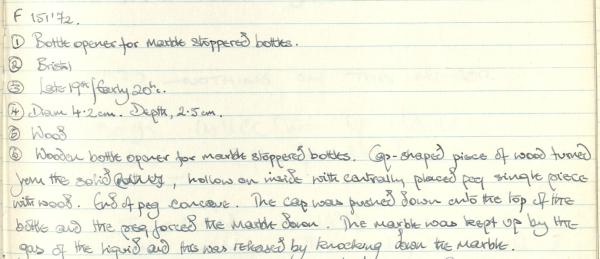 F 151'72.
① Bottle opener for marble stoppered bottles.
② Bristol
③ Late 19th/Early 20thc.
④ Diam 4.2cm. Depth, 2.5cm.
⑤ Wood
⑥ Wooden bottle opener for marble stoppered bottles. Cap-shaped piece of wood turned
from the solid, hollow on inside with centrally placed peg single piece
with wood. End of peg concave. The cap was pushed down onto the top of the
bottle and the peg forced the marble down. The marble was kept up by the
gas of the liquid and this was released by knocking down the marble.